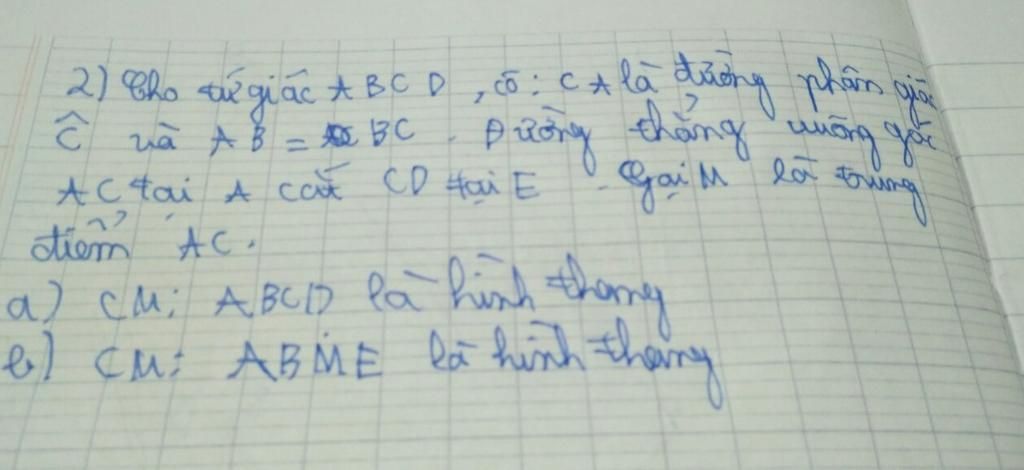 2) Cho tứ giác ABCD, có: CA là đường phân giác
Ĉ và AB = BC. Đường thẳng vuông góc
AC tại A cắt CD tại E. Gọi M là trung
điểm AC.
a) CM: ABCD là hình thang
b) CM: ABME là hình thang